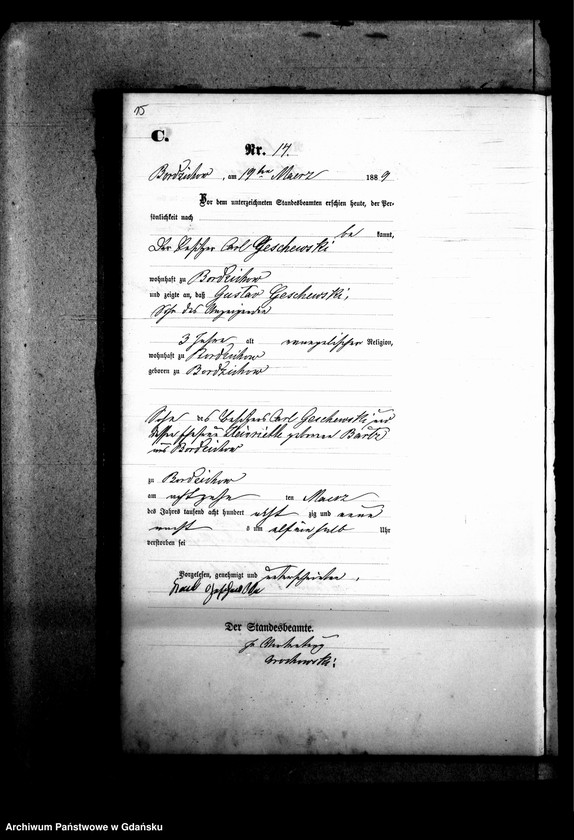 15
C.
Nr. 14.
Bordzichow, am 19ten Maerz 1889
Vor dem unterzeichneten Standesbeamten erschien heute, der Per-
sönlichkeit nach
be kannt,
Der Besitzer Carl Geschewski
wohnhaft zu Bordzichow
und zeigte an, daß Gustav Geschewski,
Sohn des Anzeigenden
3 Jahre alt evangelischer Religion,
wohnhaft zu Bordzichow
geboren zu Bordzichow
Sohn des Besitzers Carl Geschewski und
dessen Ehefrau Henriette geborene Bartz
aus Bordzichow
zu Bordzichow
am achtzehn ten Maerz
des Jahres tausend acht hundert acht zig und neun
nachts um elfeinhalb Uhr
verstorben sei
Vorgelesen, genehmigt und unterschrieben.
Karl Geschewski
Der Standesbeamte.
In Vertretung
Archiwum Państwowe w Gdańsku